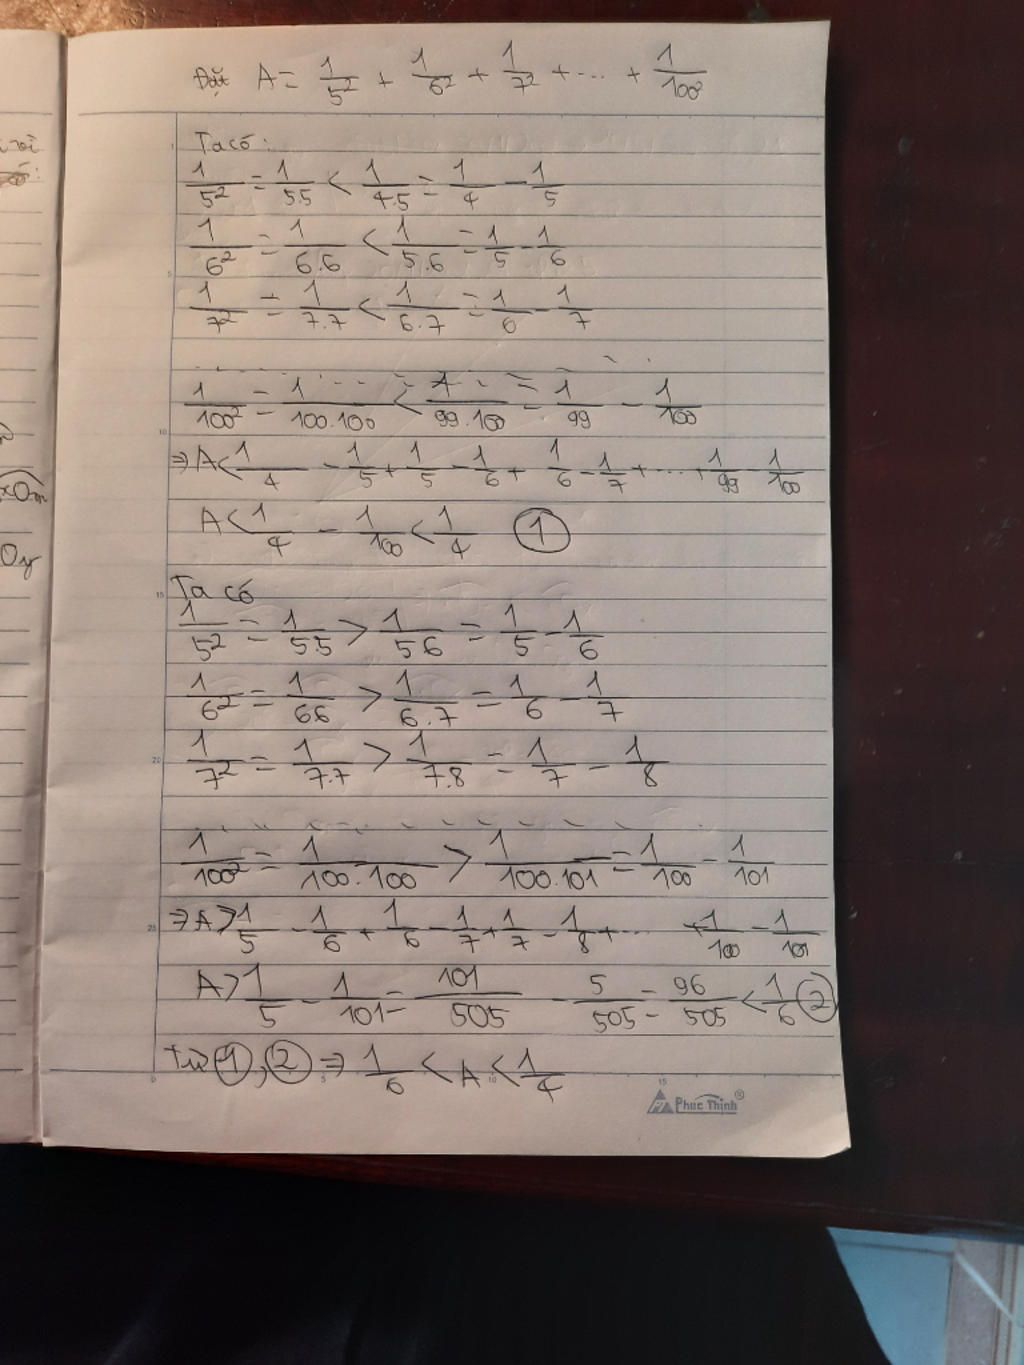 Đặt A = 1/5² + 1/6² + 1/7² + ... + 1/100²
Ta có:
1/5² = 1/5.5 < 1/4.5 = 1/4 - 1/5
1/6² = 1/6.6 < 1/5.6 = 1/5 - 1/6
1/7² = 1/7.7 < 1/6.7 = 1/6 - 1/7
1/100² = 1/100.100 < 1/99.100 = 1/99 - 1/100
⇒ A < 1/4 - 1/5 + 1/5 - 1/6 + 1/6 - 1/7 + ... + 1/99 - 1/100
A < 1/4 - 1/100 < 1/4 ①
Ta có
1/5² = 1/5.5 > 1/5.6 = 1/5 - 1/6
1/6² = 1/6.6 > 1/6.7 = 1/6 - 1/7
1/7² = 1/7.7 > 1/7.8 = 1/7 - 1/8
1/100² = 1/100.100 > 1/100.101 = 1/100 - 1/101
⇒ A > 1/5 - 1/6 + 1/6 - 1/7 + 1/7 - 1/8 + ... + 1/100 - 1/101
A > 1/5 - 1/101 = 101/505 - 5/505 = 96/505 < 1/6 ②
Từ ①, ② ⇒ 1/6 < A < 1/4
Phuc Thinh®